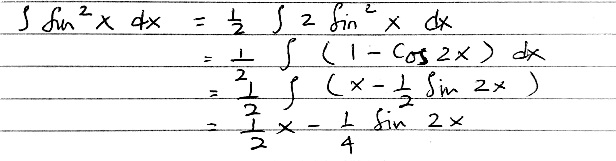 ∫ sin² x dx = 1/2 ∫ 2 sin² x dx
= 1/2 ∫ (1 - Cos 2x) dx
= 1/2 ∫ (x - 1/2 Sin 2x)
= 1/2 x - 1/4 Sin 2x